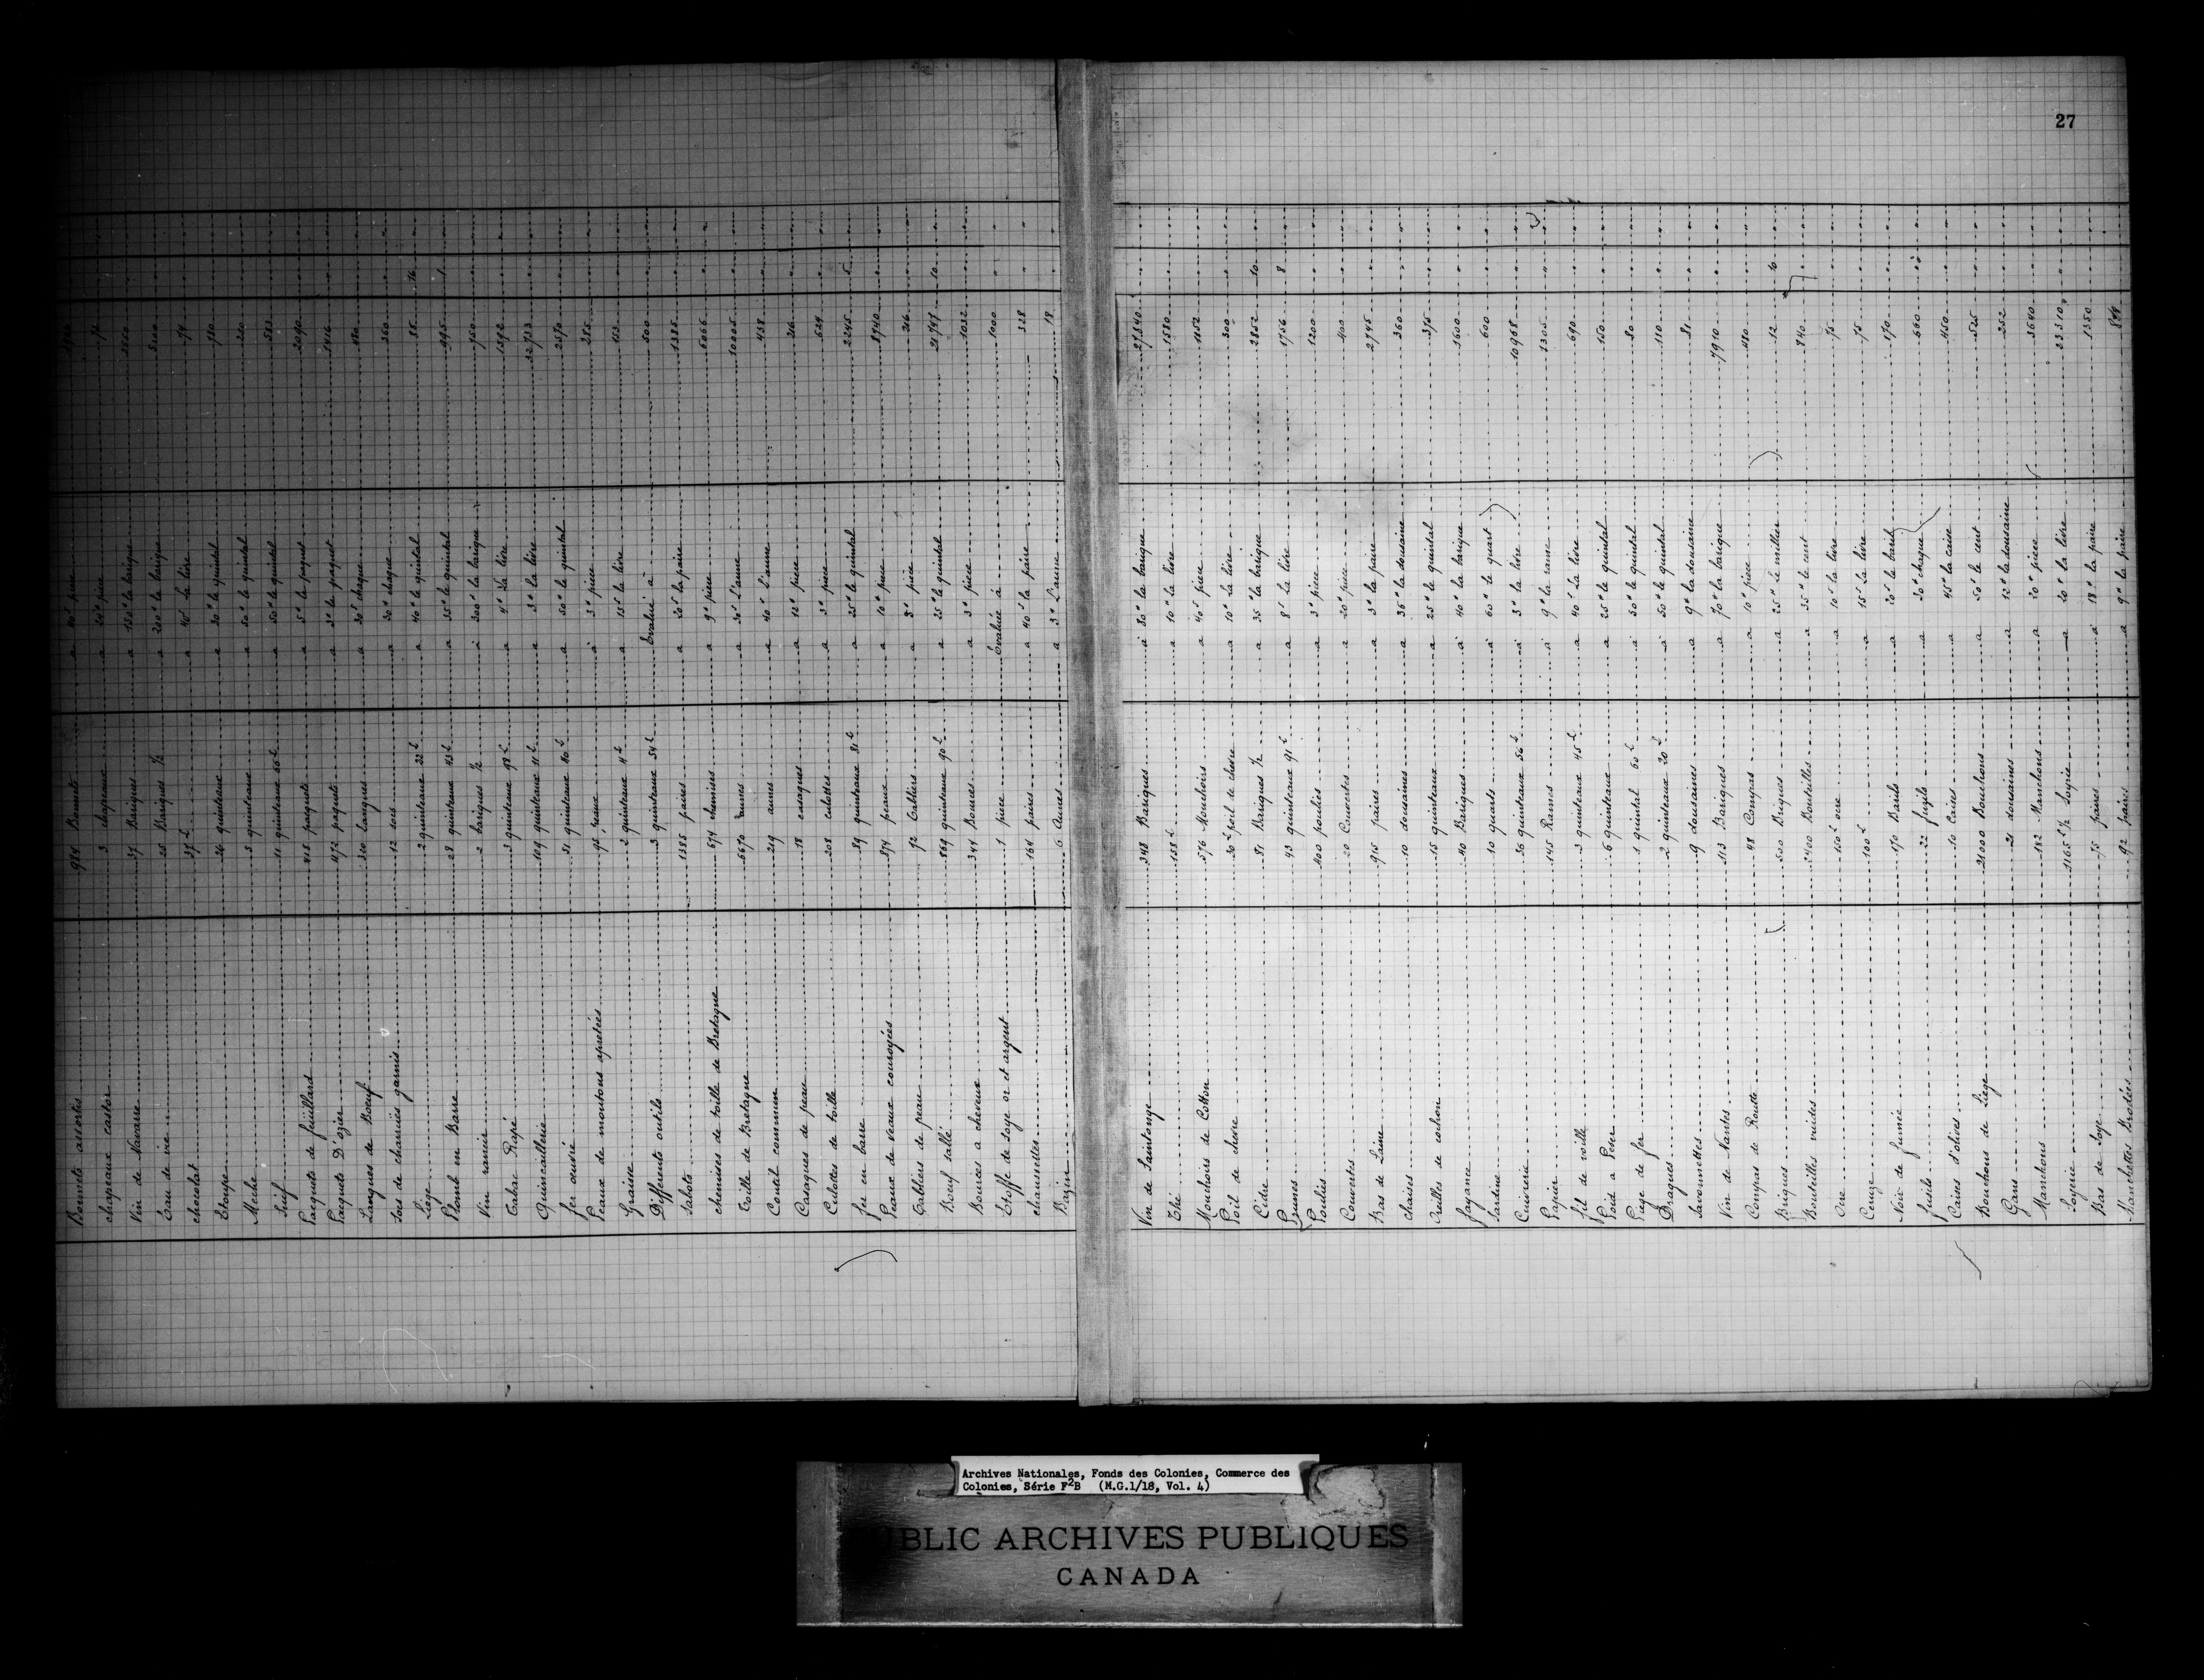 27
Bonnets assortis 984 Bonnets a 40ˢ piece
chapeaux castor 3 chapeaux a 24ᵗᵗ piece 72
Vin de Navarre 37 Bariques a 150ᵗᵗ la barique 5550
Eau de vie 25 Bariques ½ a 200ᵗᵗ la barique
chocolat 37ᴸ a 40ˢ la livre 74
Etoupe 26 quinteaux a 30ᵗᵗ le quintal 780
Meche a 50ᵗᵗ le quintal
Suif 11 quinteaux 66ᴸ a 50ᵗᵗ le quintal 583
Pacquets de feuillard 418 paquets a 5ᵗᵗ le paquet 2090
Pacquets D'ozier 472 paquets a 3ᵗᵗ le paquet 1416
Langues de Boeuf 320 langues a 30ˢ chaque 480
Socs de charruës garnis 12 socs a 30ᵗᵗ chaque 360
Liege 2 quinteaux 22ᴸ a 40ᵗᵗ le quintal 88 16
Plomb en Barre 28 quinteaux 43ᴸ a 35ᵗᵗ le quintal 995 1
Vin rancio 2 bariques ½ a 300ᵗᵗ la barique 750
Tabac Rapé 3 quinteaux 98ᴸ a 4ᵗᵗ La livre 1592
Quincaillerie 109 quinteaux 11ᴸ a 3ᵗᵗ la livre 32733
fer ouvré 51 quinteaux 40ᴸ a 50ᵗᵗ le quintal 2570
Peaux de moutons apretées 95 peaux a 3ᵗᵗ piece 285
Graisse 2 quinteaux 4ᴸ a 15ˢ la livre 153
Differents outils 3 quinteaux 54ᴸ Evalué à 500
Sabots 1385 paires a 20ˢ la paire 1385
chemises de toille de Bretagne 674 chemises a 9ᵗᵗ piece 6066
Toille de Bretagne 6670 aunes a 30ˢ L'aune 10005
Coutil commun 219 aunes a 40ˢ l'aune 438
Casaques de peau 18 casaques a 12ᵗᵗ piece 216
Culottes de toille 208 culottes a 3ᵗᵗ piece 624
fer en barre 89 quinteaux 81ᴸ a 25ᵗᵗ le quintal 2245 5
Peaux de veaux couroyées 874 peaux a 10ᵗᵗ piece 8740
Tabliers de peau 72 Tabliers a 3ᵗᵗ piece 216
Boeuf sallé 869 quinteaux 90ᴸ a 25ᵗᵗ le quintal 21747 10
Bources a cheveux 344 Bources a 3ᵗᵗ piece 1032
Etoffe de Soye or et argent 1 piece Evaluée à 1000
chaussettes 164 paires a 40ˢ la paire 328
Bazin 6 Aunes a 3ᵗᵗ L'aune 18
Vin de Saintonge 348 Bariques à 80ᵗᵗ la barique 27840
Thé 158ᴸ a 10ᵗᵗ la livre 1580
Mouchoirs de Cotton 576 Mouchoirs a 40ˢ piece 1152
Poil de chevre 30ᴸ poil de chevre a 10ᵗᵗ la livre 300
Cidre 81 Bariques ½ a 35ᵗᵗ la barique 2852 10
Prunes 43 quinteaux 91ᴸ a 8ˢ La livre 1756 8
Poulies 400 poulies a 3ᵗᵗ piece 1200
Couvertes 20 Couvertes a 20ᵗᵗ piece 400
Bas de Laine 915 paires a 3ᵗᵗ la paire 2745
chaises 10 douzaines a 36ᵗᵗ la douzaine 360
Oreilles de cochon 15 quinteaux a 25ᵗᵗ le quintal 375
fayance 40 Bariques à 40ᵗᵗ la barique 1600
Sardine 10 quarts à 60ᵗᵗ le quart 600
Cuivrerie 36 quinteaux 56ᴸ à 3ᵗᵗ la livre 10968
Papier 145 Rames à 9ᵗᵗ la rame 1305
fil de voille 3 quinteaux 45ᴸ a 40ˢ La livre 690
Poid a Peser 6 quinteaux a 25ᵗᵗ le quintal 150
Piege de fer 1 quintal 60ᴸ à 50ᵗᵗ le quintal 80
Dragues 2 quinteaux 20ᴸ à 50ᵗᵗ le quintal 110
Savonnettes 9 douzaines a 9ᵗᵗ la douzaine 81
Vin de Nantes 113 Bariques a 70ᵗᵗ la barique 7910
Compas de Routte 48 Compas a 10ᵗᵗ piece 480
Briques 500 Briques a 25ᵗᵗ le millier 12
Bouteilles vuides 2400 Bouteilles a 35ᵗᵗ le cent 840
Ocre 150ᴸ ocre a 10ˢ La livre 75
Ceruze 100ᴸ a 15ˢ La livre 75
Noir de fumée 170 Barils a 20ˢ le baril 170
fusils 22 fuzils a 30ᵗᵗ chaque 660
Caises d'olives 10 Caises a 45ᵗᵗ la caise 450
Bouchons de Liege 21000 Bouchons a 50ˢ le cent 525
Gans 21 douzaines a 12ᵗᵗ la douzaine 252
Manchons 182 Manchons a 20ᵗᵗ piece 3640
Soyerie 1165ᴸ ½ Soyrie a 20ᵗᵗ la livre 23310
Bas de Soye 75 paires a 18ᵗᵗ la paire 1350
Manchettes Brodées 92 paires a 9ᵗᵗ la paire
Archives Nationales, Fonds des Colonies, Commerce des
Colonies, Série F²B (M.G.1/18, Vol. 4)
PUBLIC ARCHIVES PUBLIQUES
CANADA